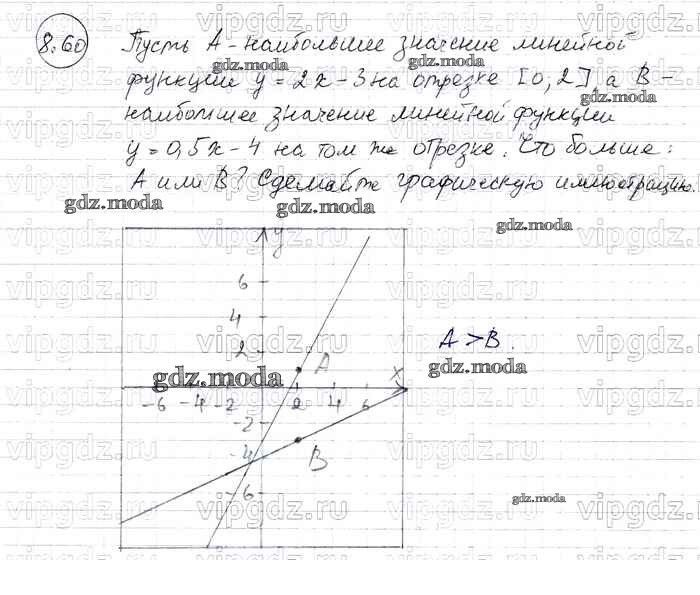 8.60 Пусть А - наибольшее значение линейной
функции y = 2x - 3 на отрезке [0, 2], а В -
наибольшее значение линейной функции
y = 0,5x - 4 на том же отрезке. Что больше:
А или В? Сделайте графическую иллюстрацию.
y
6
4
2
A
A > B.
x
-6 -4 -2 2 4 6
-2
-4
B
6
gdz.moda
vipgdz.ru